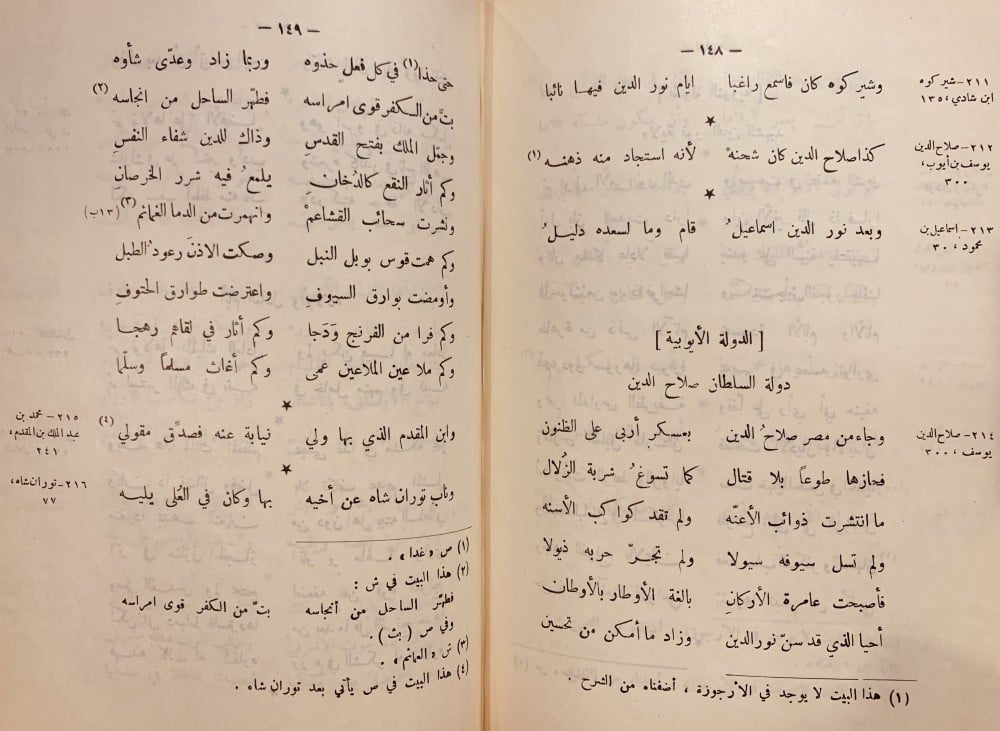 — ١٤٨ —
٢١١-شيركوه
ابن شادي، ١٣٥
وشيركوه كان فاسمع راغبا ايام نور الدين فيهــا نائبا
★
٢١٢-صلاح الدين
يوسف بن أيوب،
٣٠٠
كذا صلاح الدين كان شحنهْ لأنه استجاد منه ذهنــه (١)
★
٢١٣-اسماعيل بن
محمود، ٣٠
وبعد نور الدين اسماعيلُ قام وما لسعده دليــلُ
[ الدولة الأيوبية ]
دولة السلطان صلاح الدين
٢١٤-صلاح الدين
يوسف، ٣٠٠
وجاء من مصر صلاحُ الدين بعسكر أربى على الظنون
فحازها طوعاً بلا قتال كما تسوغُ شربة الزُلال
ما انتشرت ذوائب الأعنّه ولم تقد كواكب الأسنه
ولم تسل سيوفه سيولا ولم تجرّ حربه ذيولا
فأصبحت عامرة الأركانِ بالغة الأوطار بالأوطان
أحيا الذي قد سنّ نورالدين وزاد ما أمكن من تحسين
(١) هذا البيت لا يوجد في الأرجوزة، أضفناه من الشرح.
— ١٤٩ —
حتى حذا (١) في كل فعلٍ حذوه وربما زاد وعدّى شأوه
بتّ من الكفر قوى امراسه فطهّر الساحل من انجاسه (٢)
وجمّل الملك بفتح القدس وذاك للدين شفاء النفسِ
وكم أثار النقع كالدُخانِ يلمعُ فيه شرر الخرصانِ
ونشرت سحائب القشاعمْ وانهمرت من الدما الغمائم (٣) (١٣ب)
وكم همت قوس بوبل النبل وصكت الاذنَ رعودُ الطبل
وأومضت بوارق السيوف واعترضت طوارق الحتوفِ
وكم فرا من الفرنج وَدَجا وكم أثار في لقائهم رهجــا
وكم ملا عين الملاعين عمى وكم أغاث مسلماً وسلّما
★
٢١٥-محمد بن
عبد الملك بن المقدم،
٢٤١
وابن المقدم الذي بها ولي نيابة عنه فصدّق مقولي (٤)
★
٢١٦-توران شاه،
٧٧
وناب توران شاه عن أخيه بها وكان في العُلى يليــه
(١) ص «غدا».
(٢) هذا البيت في ش :
فطهّر الساحل من أنجاسه بتّ من الكفر قوى امراسه
وفي ص (بث).
(٣) ش «العمائم».
(٤) هذا البيت في ص يأتي بعد توران شاه.